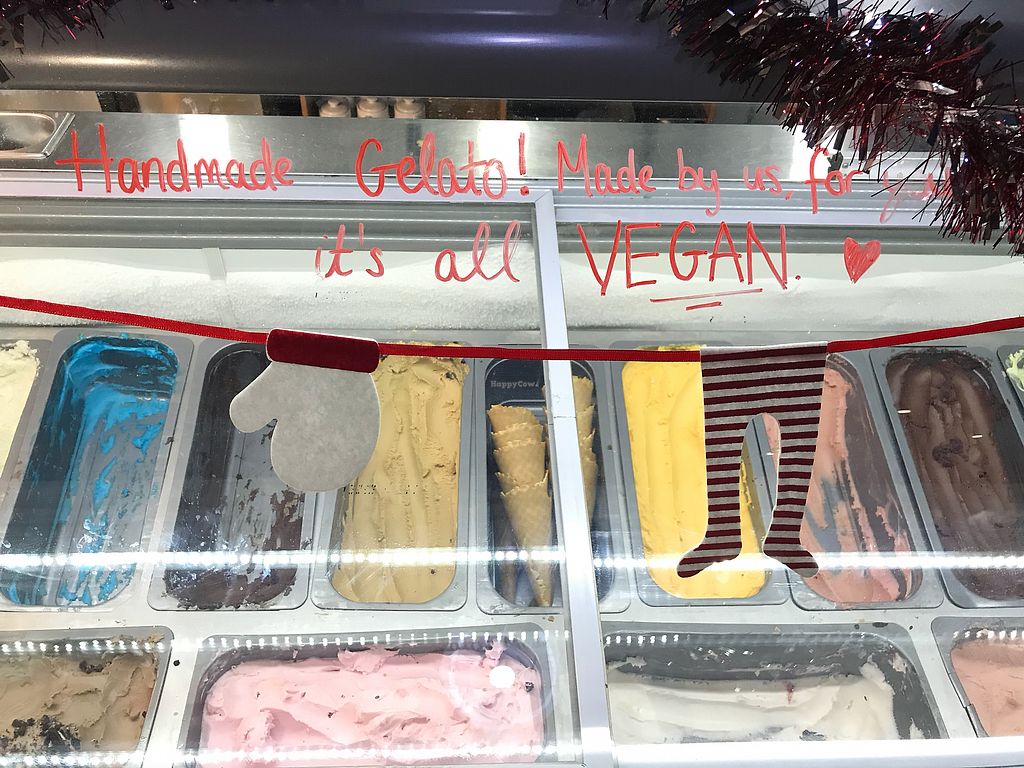 Handmade Gelato! Made by us, for you
it's all VEGAN.
HappyCow